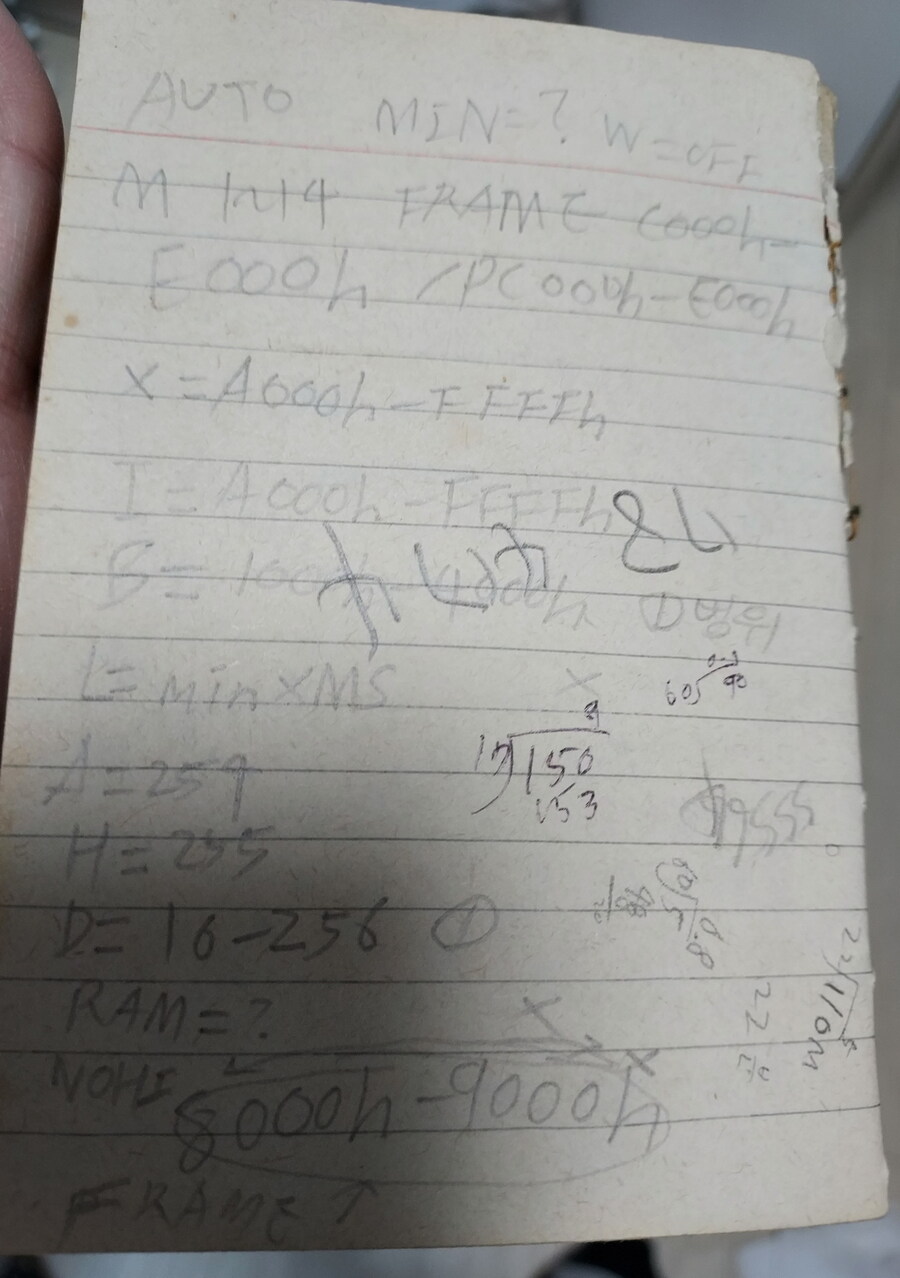 AUTO MIN=? W=OFF
M 1~14 FRAME C000h-
E000h /PC000h-E000h
X=A000h-FFFFh
I=A000h-FFFFh
B=1000h-4000h ① 범위
L=min XMS X
A=254
H=255
D=16-256 ①
RAM=? X
NOHI
8000h-9000h X
FRAME ↑
9
17 150
153
60 90
22 110m 5